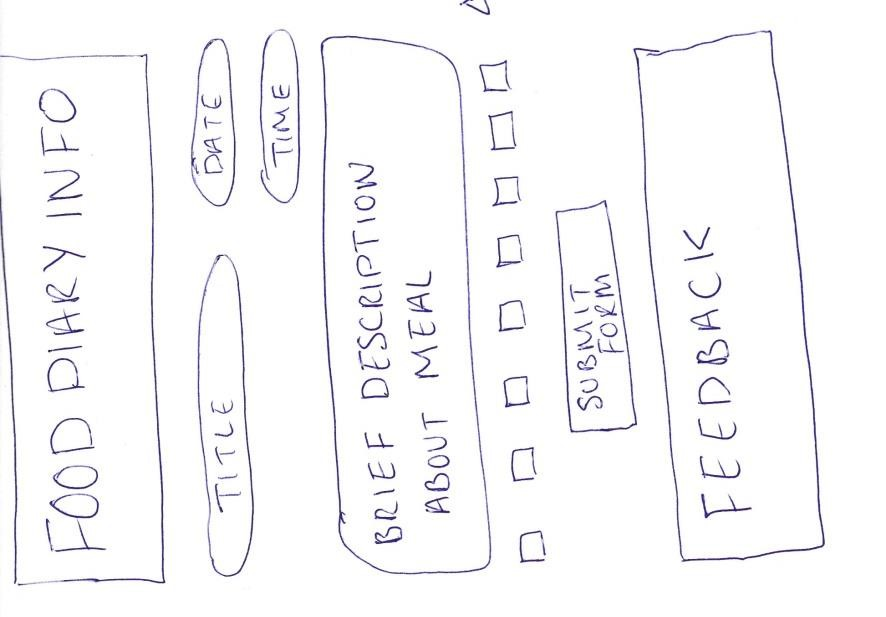 FOOD DIARY INFO
TITLE
DATE
TIME
BRIEF DESCRIPTION
ABOUT MEAL
SUBMIT
FORM
FEEDBACK